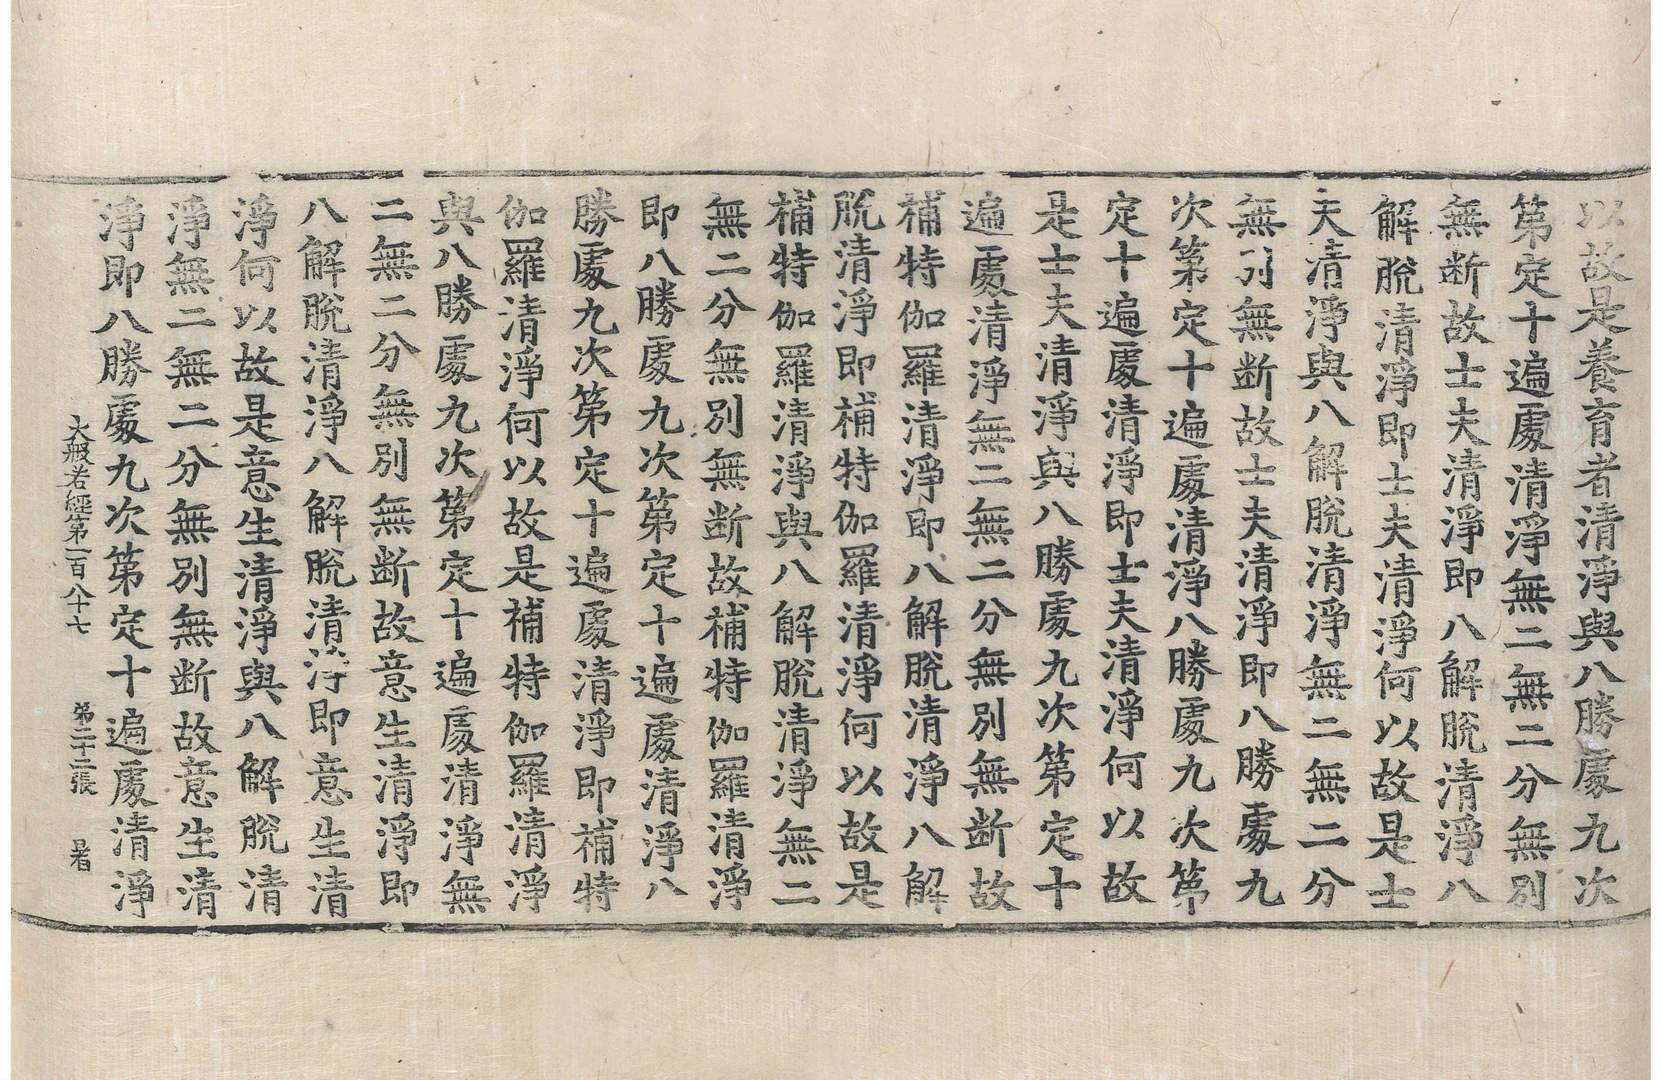 以故是養育者清淨與八勝處九次
第定十遍處清淨無二無二分無別
無断故士夫清淨即八解脫清淨八
解脫清淨即士夫清淨何以故是士
夫清淨與八解脫清淨無二無二分
無別無断故士夫清淨即八勝處九
次第定十遍處清淨八勝處九次第
定十遍處清淨即士夫清淨何以故
是士夫清淨與八勝處九次第定十
遍處清淨無二無二分無別無断故
補特伽羅清淨即八解脫清淨八解
脫清淨即補特伽羅清淨何以故是
補特伽羅清淨與八解脫清淨無二
無二分無別無断故補特伽羅清淨
即八勝處九次第定十遍處清淨八
勝處九次第定十遍處清淨即補特
伽羅清淨何以故是補特伽羅清淨
與八勝處九次第定十遍處清淨無
二無二分無別無断故意生清淨即
八解脫清淨八解脫清淨即意生清
淨何以故是意生清淨與八解脫清
淨無二無二分無別無断故意生清
淨即八勝處九次第定十遍處清淨
大般若經第一百八十七 第二十二張 暑